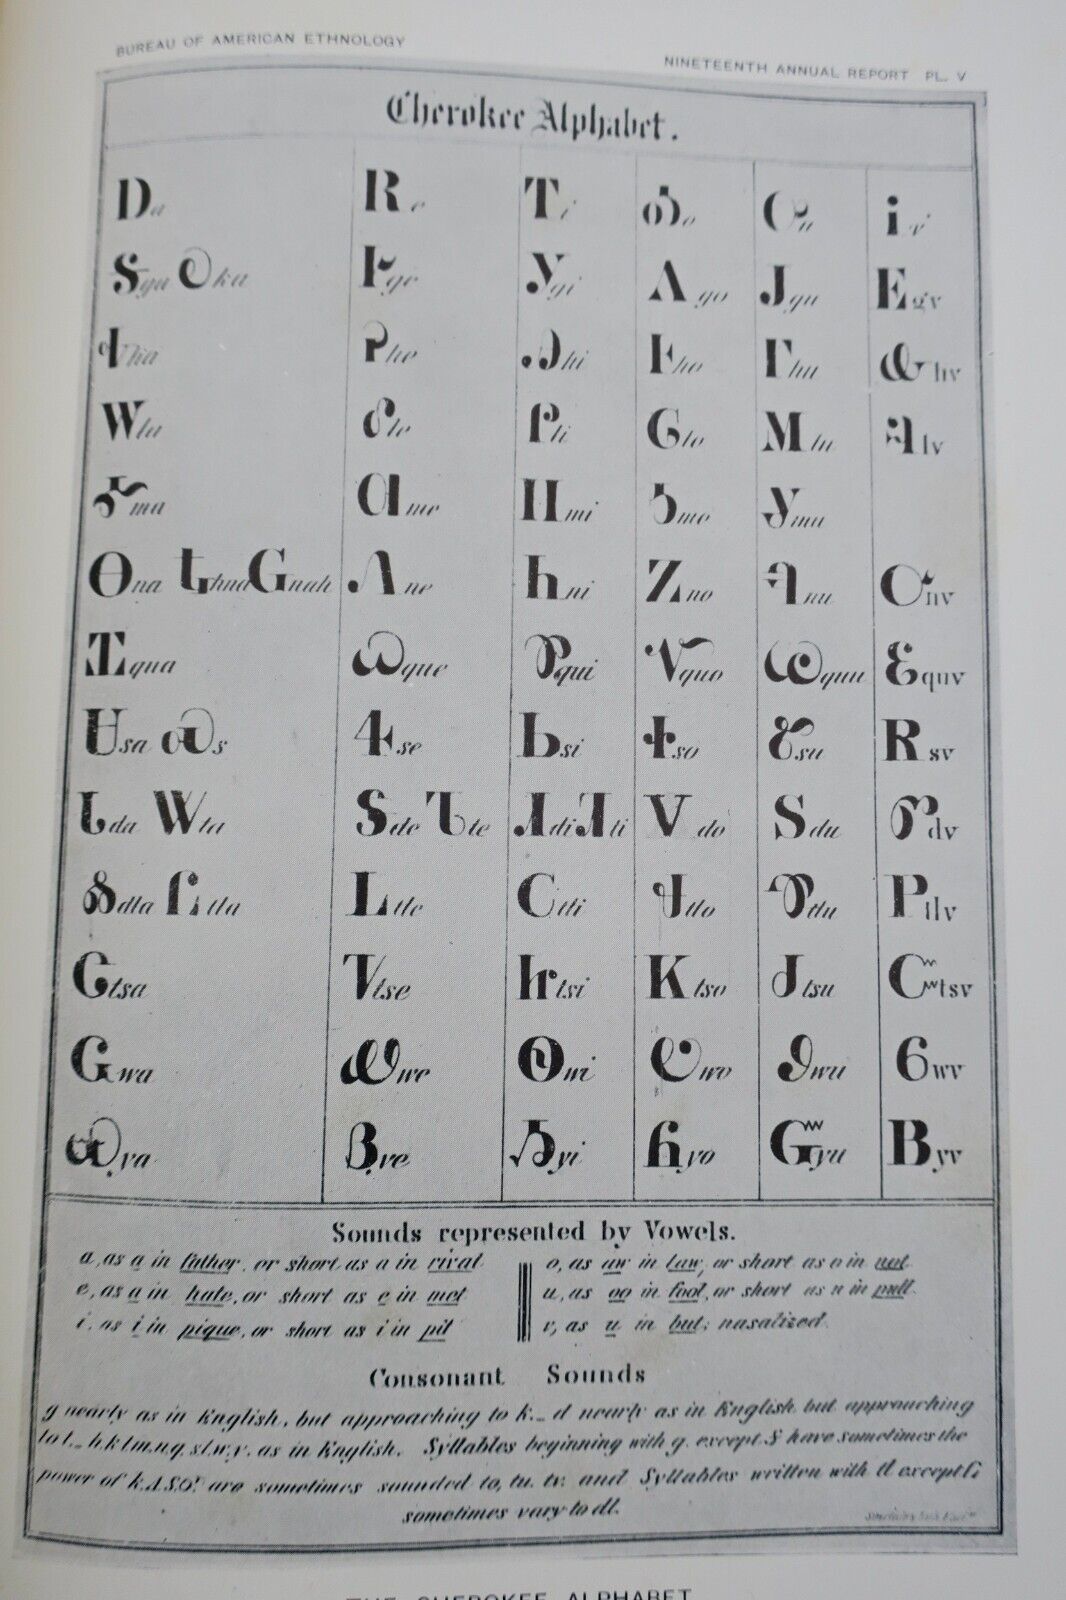 BUREAU OF AMERICAN ETHNOLOGY
NINETEENTH ANNUAL REPORT PL. V
Cherokee Alphabet.
Ꭰa Ꭱe Ꭲi Ꭳo Ꭴu Ꭵv
Ꭶga Ꭷka Ꭸge Ꭹgi Ꭺgo Ꭻgu Ꭼgv
Ꭽha Ꭾhe Ꭿhi Ꮀho Ꮁhu Ꮂhv
Ꮃla Ꮄle Ꮅli Ꮆlo Ꮇlu Ꮈlv
Ꮉma Ꮊme Ꮋmi Ꮌmo Ꮍmu
Ꮎna Ꮏhna Ꮐnah Ꮑne Ꮒni Ꮓno Ꮔnu Ꮕnv
Ꮖqua Ꮗque Ꮘqui Ꮙquo Ꮚquu Ꮛquv
Ꮜsa Ꮝs Ꮞse Ꮟsi Ꮠso Ꮡsu Ꮢsv
Ꮣda Ꮤta Ꮥde Ꮦte Ꮧdi Ꮨti Ꮩdo Ꮪdu Ꮫdv
Ꮬdla Ꮭtla Ꮮtle Ꮯtli Ꮰtlo Ꮱtlu Ꮲtlv
Ꮳtsa Ꮴtse Ꮵtsi Ꮶtso Ꮷtsu Ꮸtsv
Ꮹwa Ꮺwe Ꮻwi Ꮼwo Ꮽwu Ꮾwv
Ꮿya Ᏸye Ᏹyi Ᏺyo Ᏻyu Ᏼyv
Sounds represented by Vowels.
a, as a in father, or short as a in rival
e, as a in hate, or short as e in met
i, as i in pique, or short as i in pit
o, as aw in law, or short as o in not
u, as oo in fool, or short as u in pull
v, as u in but, nasalized.
Consonant Sounds
g nearly as in English, but approaching to k._ d nearly as in English but approaching
to t._ h.k.l.m.n.q.s.t.w.y. as in English. Syllables beginning with g. except Ꭶ have sometimes the
power of k.Ꭺ.Ꮪ.Ꮫ. are sometimes sounded to, tu, tv. and Syllables written with tl except Ꮭ
sometimes vary to dl.
THE CHEROKEE ALPHABET